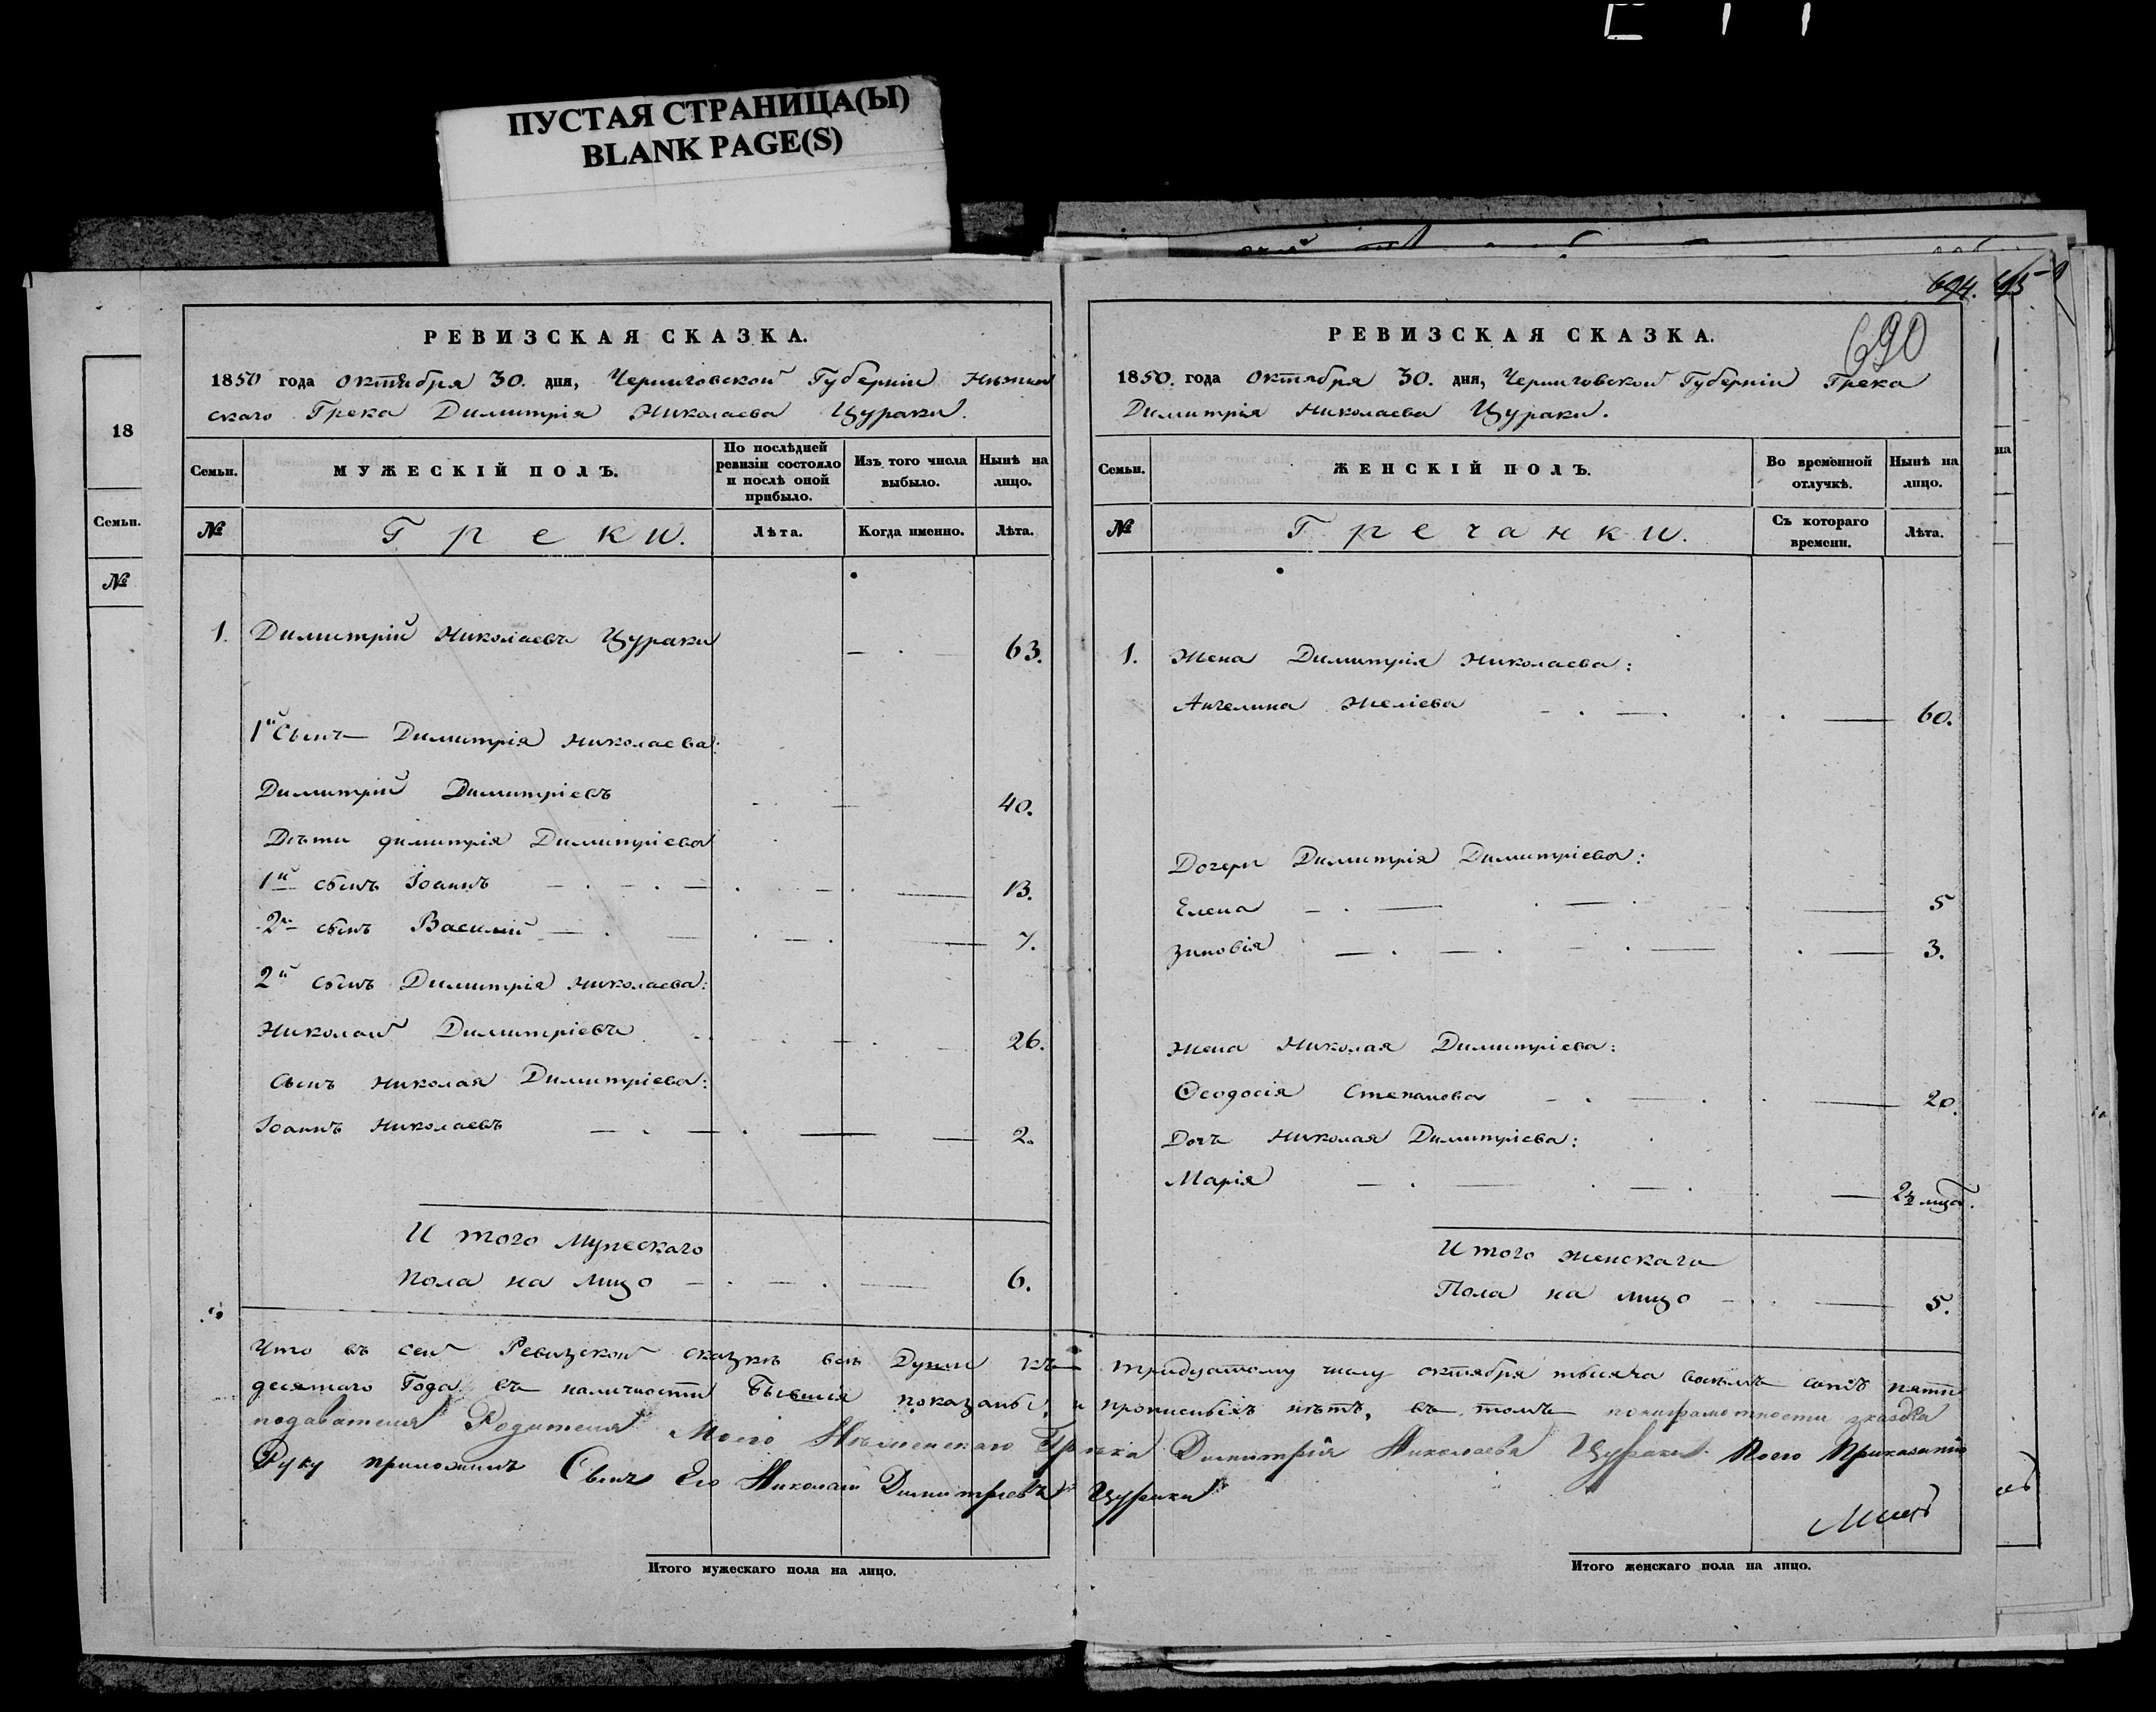 ПУСТАЯ СТРАНИЦА(Ы)
BLANK PAGE(S)
18
Семьи.
№
РЕВИЗСКАЯ СКАЗКА.
1850 года октября 30. дня, Черниговской Губерніи Нѣжин
скаго Грека Димитрія Николаева Цураки.
Семьи.
МУЖЕСКІЙ ПОЛЪ.
По послѣдней ревизіи состояло и послѣ оной прибыло.
Изъ того числа выбыло.
Нынѣ на лицо.
№
Греки.
Лѣта.
Когда именно.
Лѣта.
1. Димитрій Николаевъ Цураки 63.
1й Сынъ Димитрія Николаева:
Димитрій Димитріевъ 40.
Дѣти димитрія Димитріева
1й сынъ Іоаннъ 13.
2й сынъ Василій 7.
2й сынъ Димитрія Николаева:
Николай Димитріевъ 26.
Сынъ Николая Димитріева:
Іоаннъ Николаевъ 2.
И того Мужескаго
пола на лицо 6.
694.
690
РЕВИЗСКАЯ СКАЗКА.
1850. года Октября 30. дня, Черниговской Губерніи Грека
Димитрія Николаева Цураки.
Семьи.
ЖЕНСКІЙ ПОЛЪ.
Во временной отлучкѣ.
Нынѣ на лицо.
№
Гречанки.
Съ котораго времени.
Лѣта.
1. Жена Димитрія Николаева:
Ангелина Желіева 60.
Дочери Димитрія Димитріева:
Елена 5
Зиновія 3.
Жена Николая Димитріева:
Ѳеодосія Степанова 20.
Дочь Николая Димитріева:
Марія
И того женскаго
Пола на лицо 5.
Что въ сей Ревизской сказкѣ всѣ Души къ тридцатому числу октября тысяча восемь сотъ пяти
десятаго Года въ наличности Бывшія показаны, и прописныхъ нѣтъ, въ томъ
подавателя Родителя Моего Нѣженскаго Грѣка Димитрія Николаева Цураки Поего Приказанію
Руку приложилъ Сынъ Его Николай Димитріевъ Цураки
Итого мужескаго пола на лицо.
Итого женскаго пола на лицо.